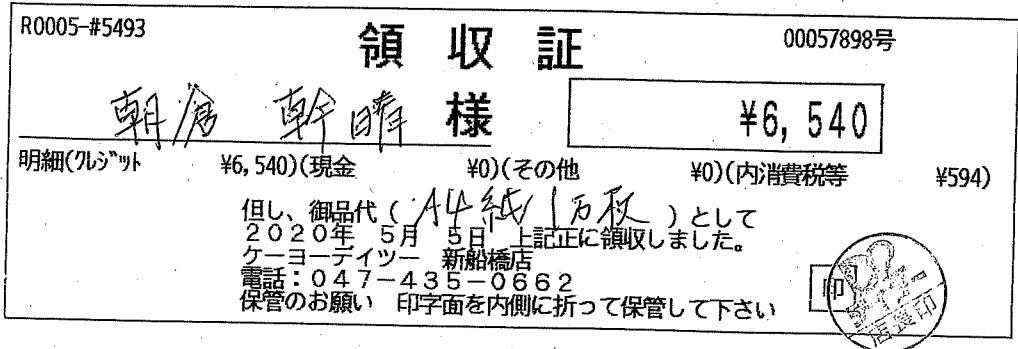 R0005-#5493
領収証
00057898号
朝倉 幹晴 様
¥6,540
明細(クレジット ¥6,540)(現金 ¥0)(その他 ¥0)(内消費税等 ¥594)
但し、御品代(A4紙1万枚)として
2020年 5月 5日 上記正に領収しました。
ケーヨーデイツー 新船橋店
電話:047-435-0662
保管のお願い 印字面を内側に折って保管して下さい
印
店長印